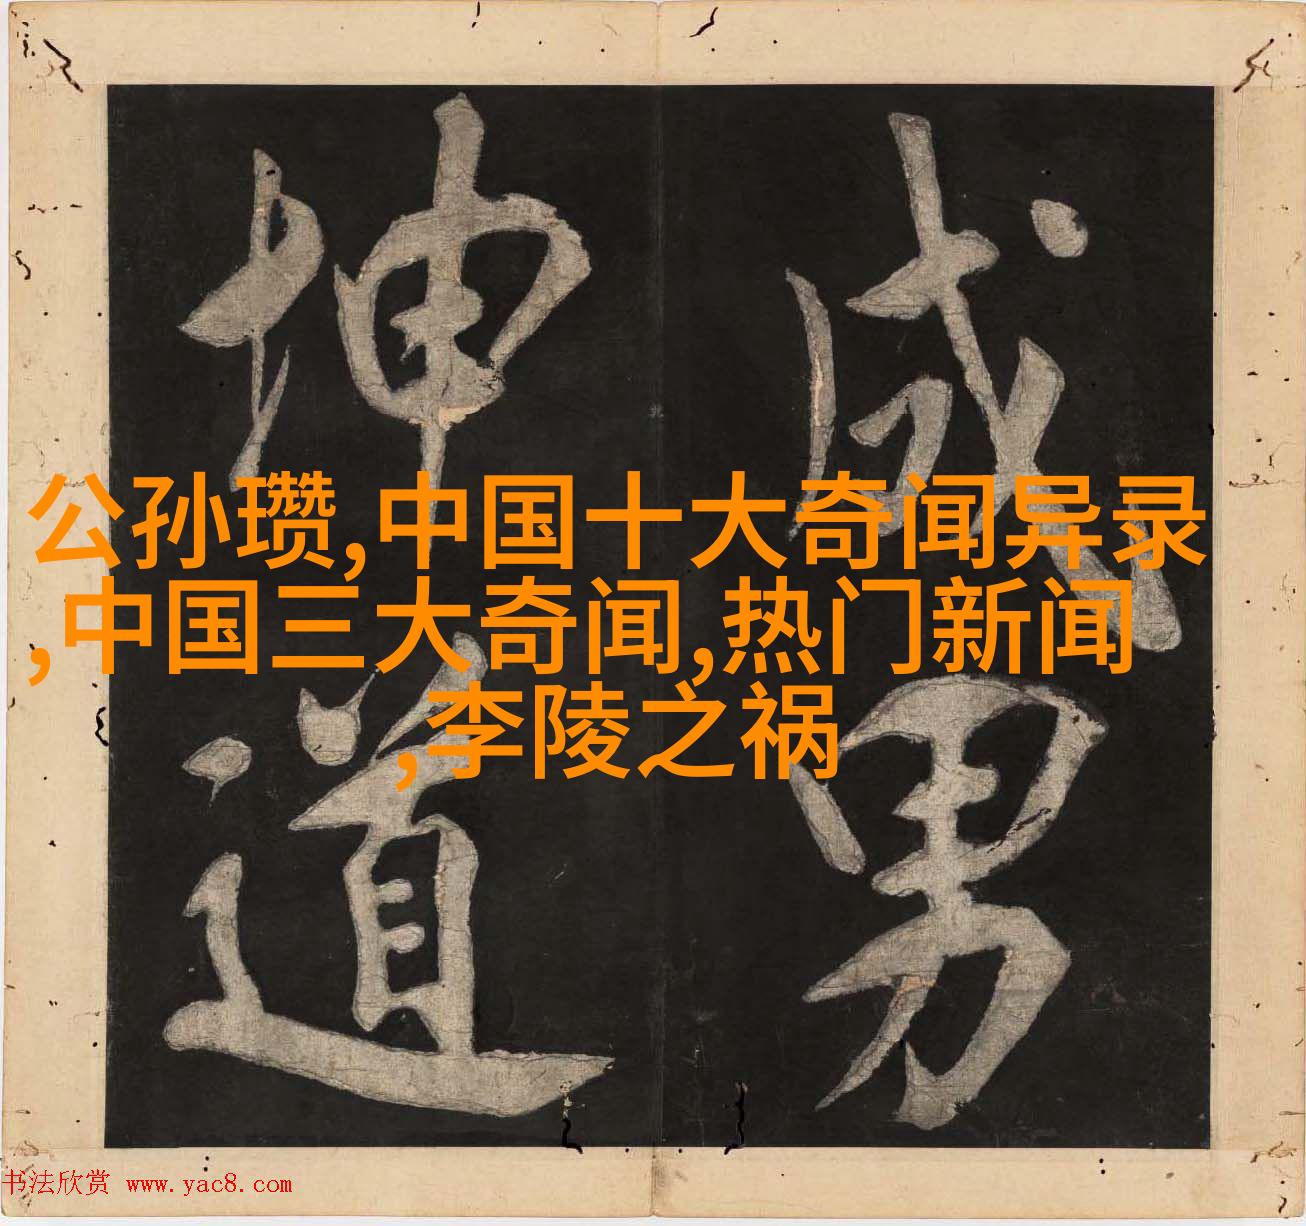 成男
坤道
公孙瓒,中国十大奇闻异录
,中国三大奇闻,热门新闻
,李陵之祸
书法欣赏 www.yac8.com